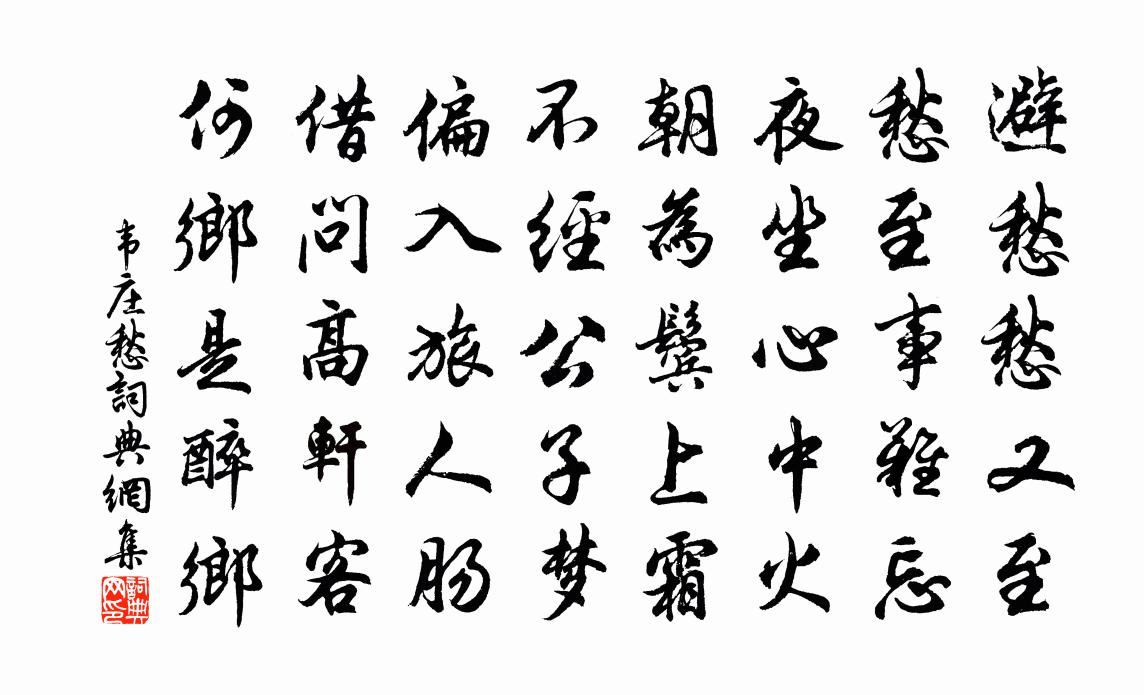 避愁愁又至
愁至事難忘
夜坐心中火
朝為鬢上霜
不經公子梦
偏入旅人腸
借問高軒客
何鄉是醉鄉
韦庄愁詞典網集
詞典网印